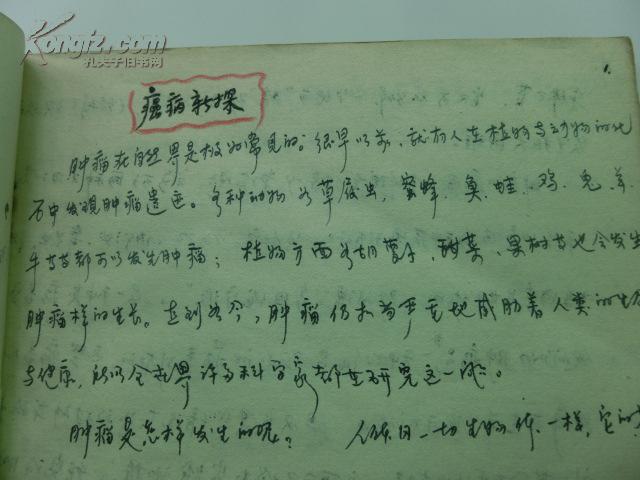 Kongfz.com
孔夫子旧书网
1.
癌病新探
肿瘤在自然界是极为常见的。很早以前，就有人在植物与动物的化
石中发现肿瘤遗迹。各种动物如草履虫，蜜蜂，鱼、蛙、鸡、兔、羊
牛等等都可以发生肿瘤；植物方面如胡萝卜、甜菜、果树等也会发生
肿瘤样的生长。直到如今，肿瘤仍极为严重地威胁着人类的生
与健康，所以全世界许多科学家都在研究这一
肿瘤是怎样发生的呢。人体同一切生物体一样，它的